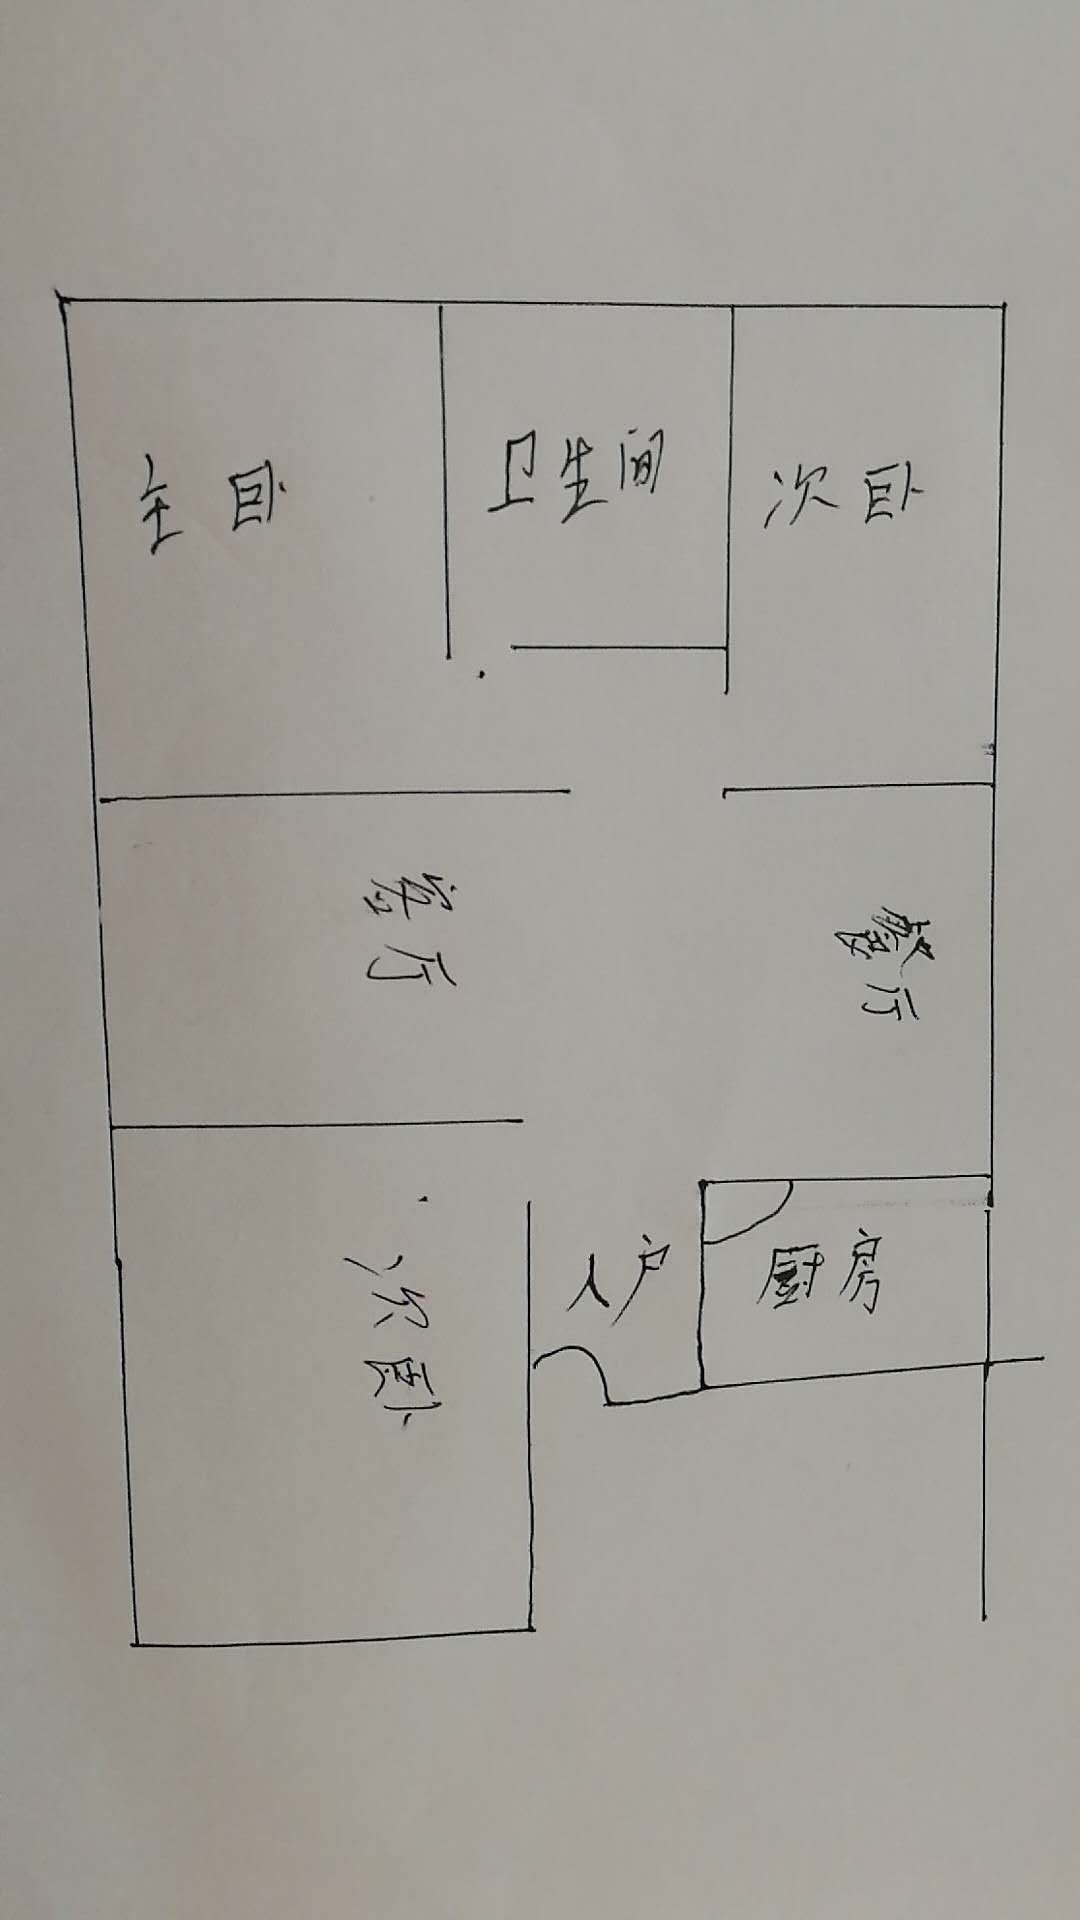 主卧
卫生间
次卧
客厅
餐厅
入户
厨房
次卧